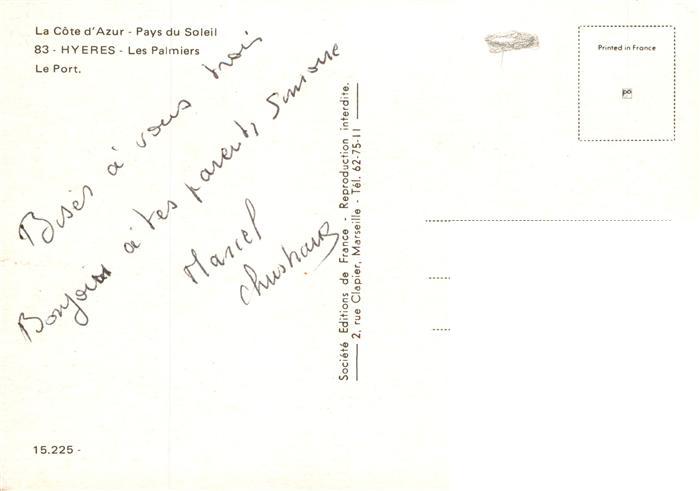 La Côte d'Azur - Pays du Soleil
83 - HYERES - Les Palmiers
Le Port.
Printed in France
Bises à vous trois
Bonjour à tes parents, Simone
Marcel
Société Editions de France - Reproduction interdite.
2, rue Clapier, Marseille - Tél. 62-75-11
15.225 -